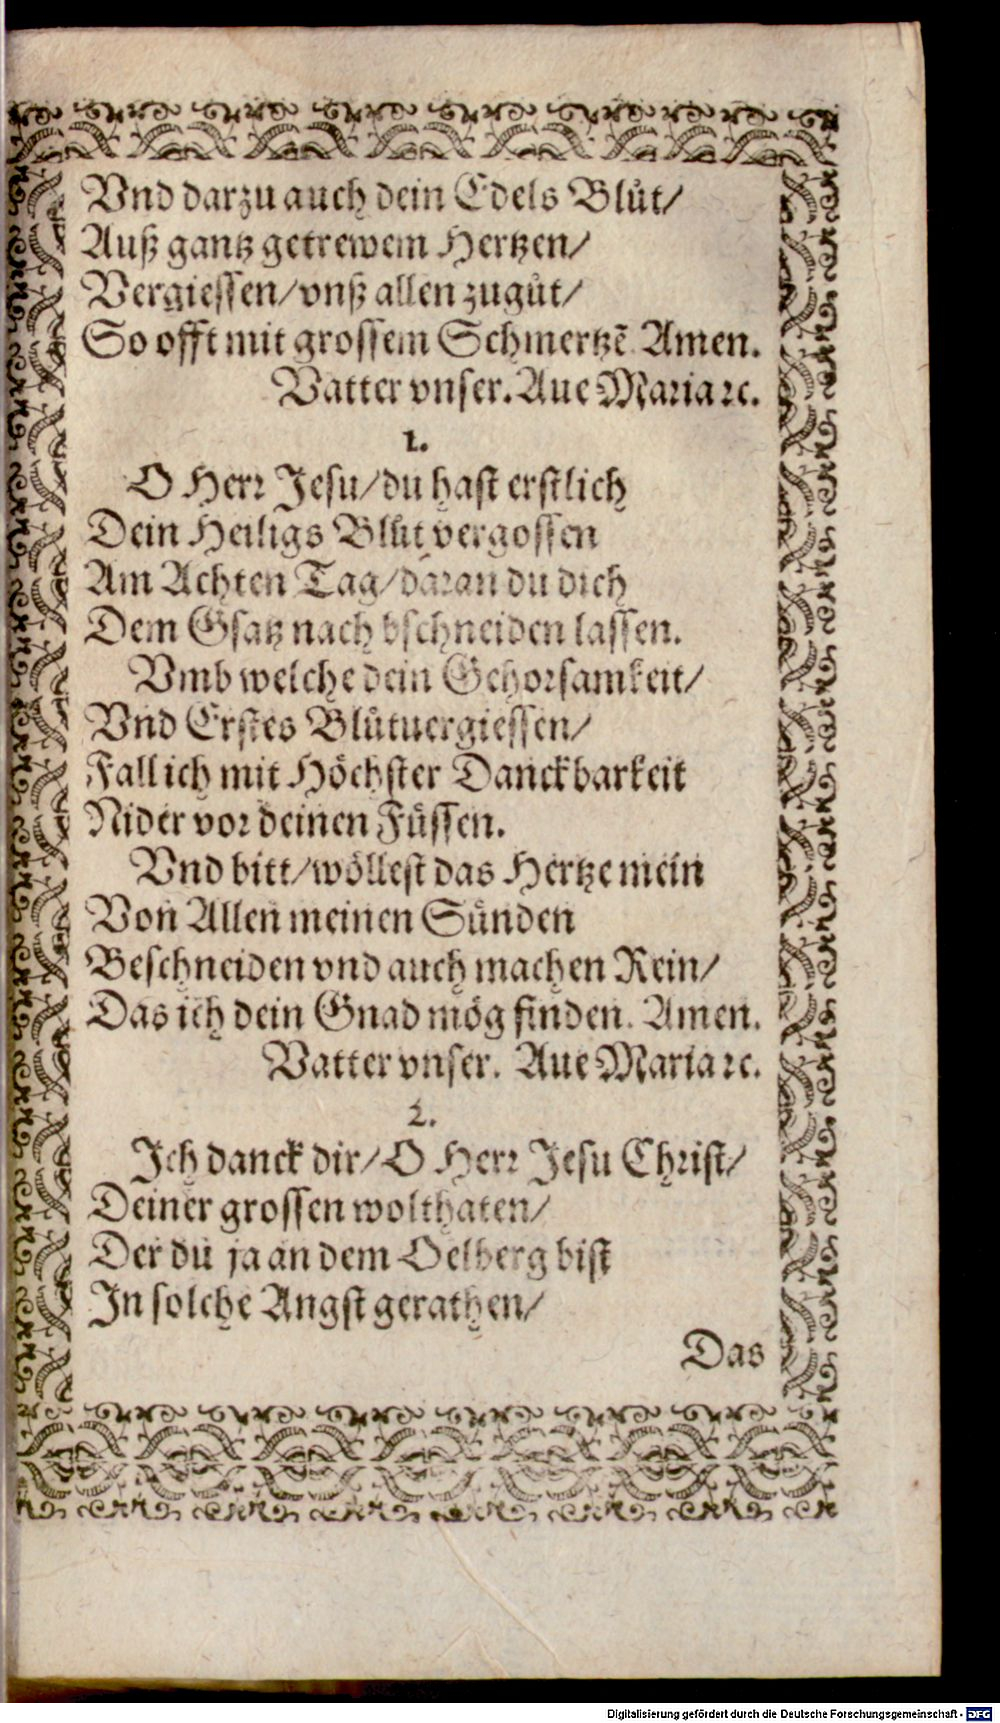 Vnd darzu auch dein Edels Blůt/
Auß gantz getrewem Hertzen/
Vergiessen/vnß allen zugůt/
So offt mit grossem Schmertzẽ. Amen.
Vatter vnser. Aue Maria ꝛc.
1.
O Herr Jesu/du hast erstlich
Dein Heiligs Blůt vergossen
Am Achten Tag/daran du dich
Dem Gsatz nach bschneiden lassen.
Vmb welche dein Gehorsamkeit/
Vnd Erstes Blůtuergiessen/
Fall ich mit Höchster Danckbarkeit
Nider vor deinen Füssen.
Vnd bitt/wöllest das Hertze mein
Von Allen meinen Sünden
Beschneiden vnd auch machen Rein/
Das ich dein Gnad mög finden. Amen.
Vatter vnser. Aue Maria ꝛc.
2.
Ich danck dir/O Herr Jesu Christ/
Deiner grossen wolthaten/
Der du ja an dem Oelberg bist
In solche Angst gerathen/
Das
Digitalisierung gefördert durch die Deutsche Forschungsgemeinschaft - DFG